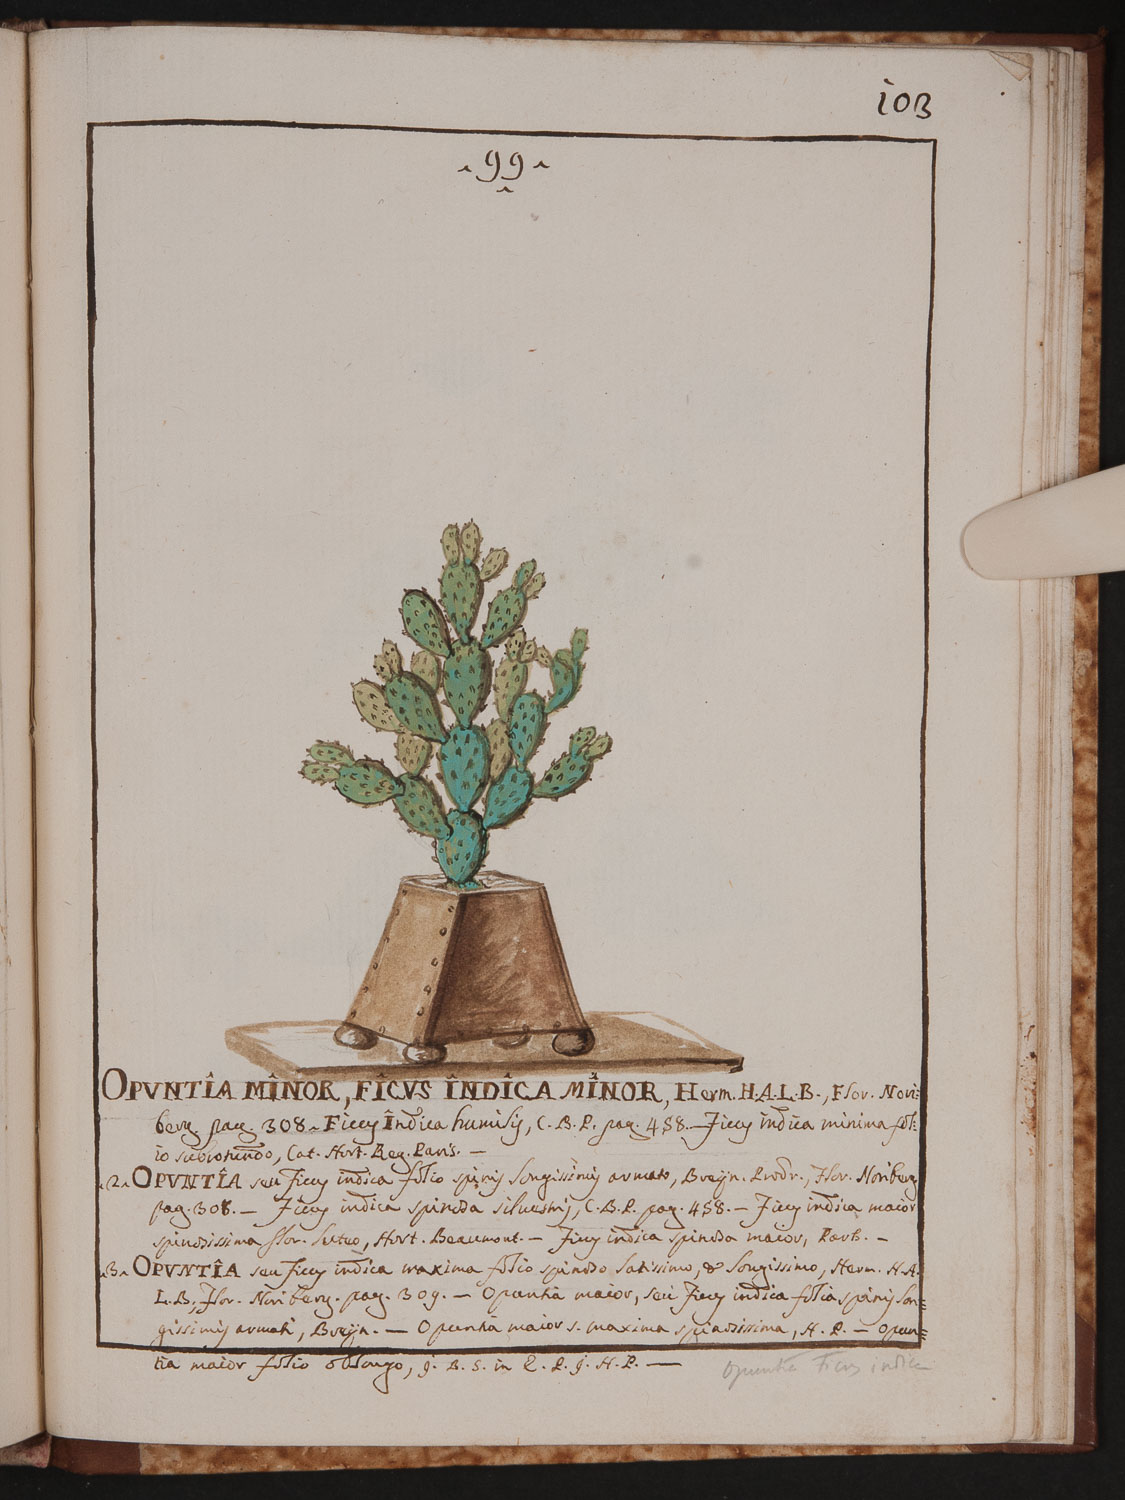 103
99
OPVNTÎA MÎNOR, FÎCVS ÎNDÎCA MÎNOR, Herm. H.A.L.B., Flor. Nori:
berg. pag. 308. Ficus Îndica humilis, C.B.P. pag. 458. — Ficus indica minima fol:
io subrotundo, Cat. Hort. Reg. Paris. —
.2. OPVNTÎA seu ficus indica folio spinis longissimis armato, Breyn. Prodr., Flor. Noriberg
pag. 308. — Ficus indica spinosa silvestris, C.B.P. pag. 458. — Ficus indica maior
spinosissima flor. luteo, Hort. Beaumont. — Ficus indica spinosa maior, —
.3. OPVNTÎA seu ficus indica maxima folio spinoso latissimo, & longissimo, Herm. H.A.
L.B., Flor. Noriberg. pag. 309. — Opuntia maior, seu ficus indica folia spinis lon=
gissimis armati, Breyn. — Opuntia maior s. maxima spinosissima, H.P. — Opun=
tia maior folio oblongo, J.B.S. in H.P. —
Opuntia Ficus indica